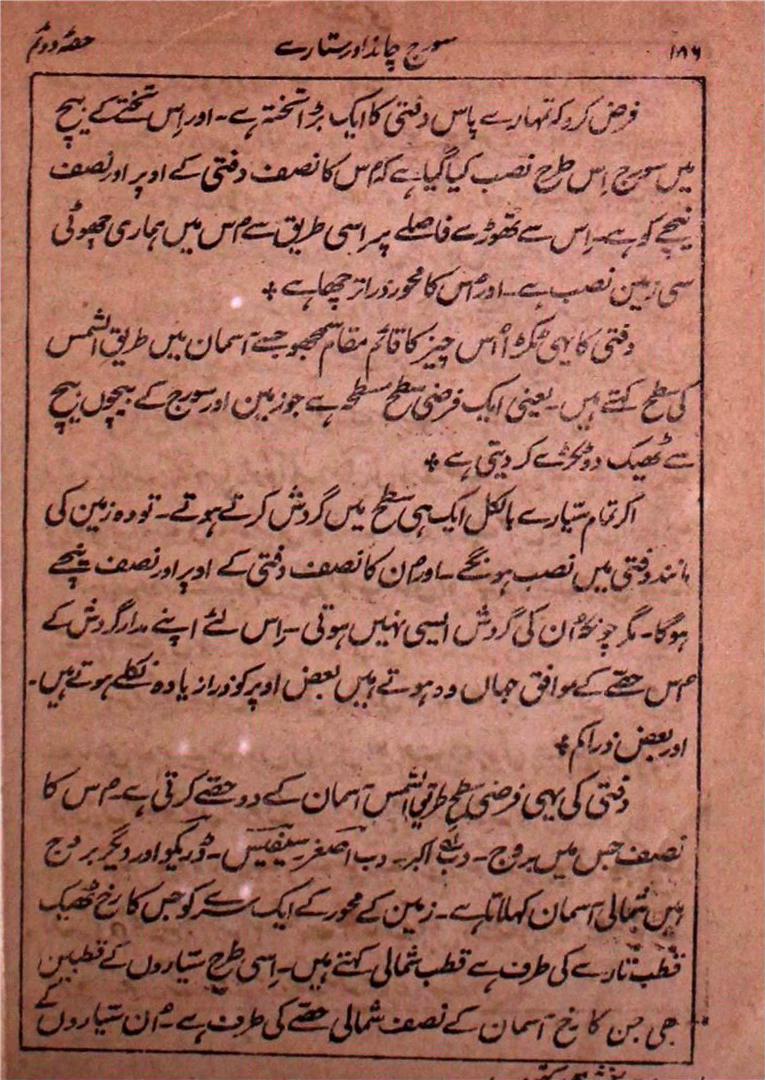 ۱۸۶ سورج چاند اور ستارے حصّہ دوئم
فرض کرو کہ تمہارے پاس دفتی کا ایک بڑا تختہ ہے۔ اور اِس تختے کے بیچ
میں سورج اِس طرح نصب کیا گیا ہے کہ اُس کا نصف دفتی کے اوپر اور نصف
نیچے کو ہے۔ اِس سے تھوڑے فاصلے پر اِسی طریق سے اُس میں ہماری چھوٹی
سی زمین نصب ہے۔ اور اُس کا محور ذرا ترچھا ہے +
دفتی کا یہی ٹکڑا اُس چیز کا قائم مقام سمجھو جسے آسمان میں طریق الشمس
کی سطح کہتے ہیں۔ یعنی ایک فرضی سطح مسطحہ ہے جو زمین اور سورج کے بیچوں بیچ
سے ٹھیک دو ٹکڑے کر دیتی ہے +
اگر تمام سیّارے بالکل ایک ہی سطح میں گردش کرتے ہوتے۔ تو وہ زمین کی
مانند دفتی میں نصب ہونگے۔ اور اُن کا نصف دفتی کے اوپر اور نصف نیچے
ہوگا۔ مگر چونکہ اُن کی گردش ایسی نہیں ہوتی۔ اِس لئے اپنے مدار گردش کے
اُس حصّے کے موافق جہاں وہ ہوتے ہیں بعض اوپر کو ذرا زیادہ نکلے ہوتے ہیں۔
اور بعض ذرا کم +
دفتی کی یہی فرضی سطحِ طریق الشمس آسمان کے دو حصّے کرتی ہے۔ اُس کا
نصف جس میں بروج۔ دب اکبر۔ دب اصغر سیفیس۔ ڈریکو اور دیگر بروج
ہیں شمالی آسمان کہلاتا ہے۔ زمین کے محور کے ایک سرے کو جس کا رخ ٹھیک
قطب تارے کی طرف ہے قطب شمالی کہتے ہیں۔ اِسی طرح سیّاروں کے قطبین
بھی جن کا رخ آسمان کے نصف شمالی حصّے کی طرف ہے۔ اُن سیّاروں کے